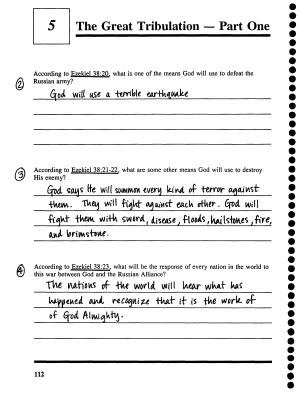 5
The Great Tribulation — Part One
According to Ezekiel 38:20, what is one of the means God will use to defeat the
Russian army?
2
God will use a terrible earthquake
According to Ezekiel 38:21-22, what are some other means God will use to destroy
His enemy?
3
God says He will summon every kind of terror against
them. They will fight against each other. God will
fight them with sword, disease, floods, hailstones, fire,
and brimstone.
According to Ezekiel 38:23, what will be the response of every nation in the world to
this war between God and the Russian Alliance?
4
The nations of the world will hear what has
happened and recognize that it is the work of
of God Almighty.
112